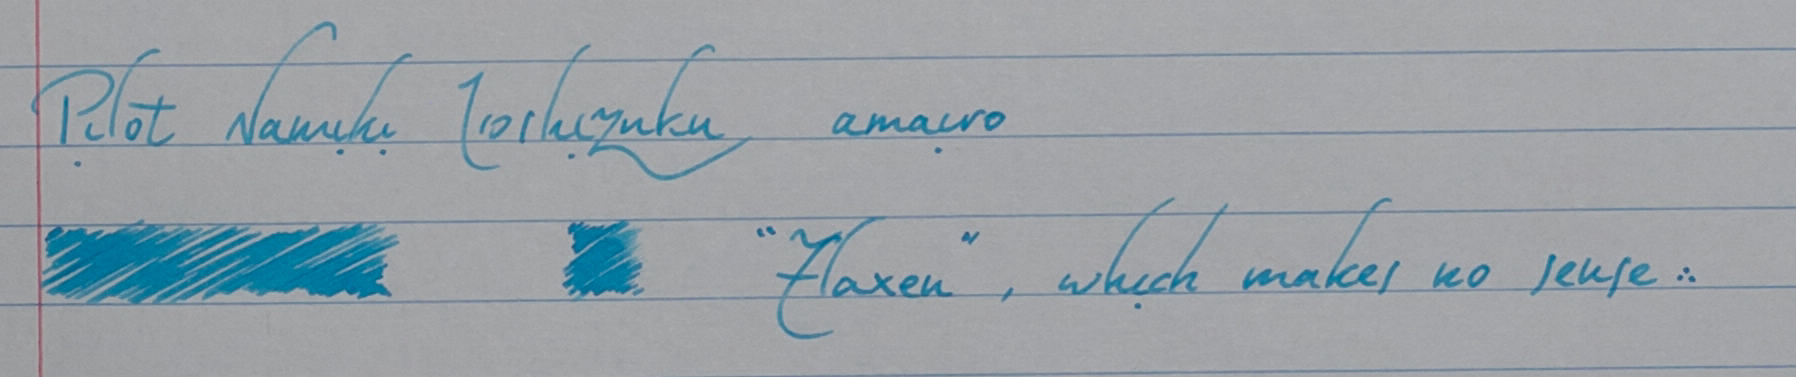 Pilot Namiki Iroshizuku amairo
"Flaxen", which makes no sense ∴